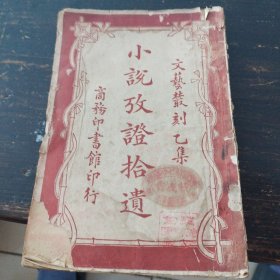 文藝叢刻乙集
小說攷證拾遺
商務印書館印行